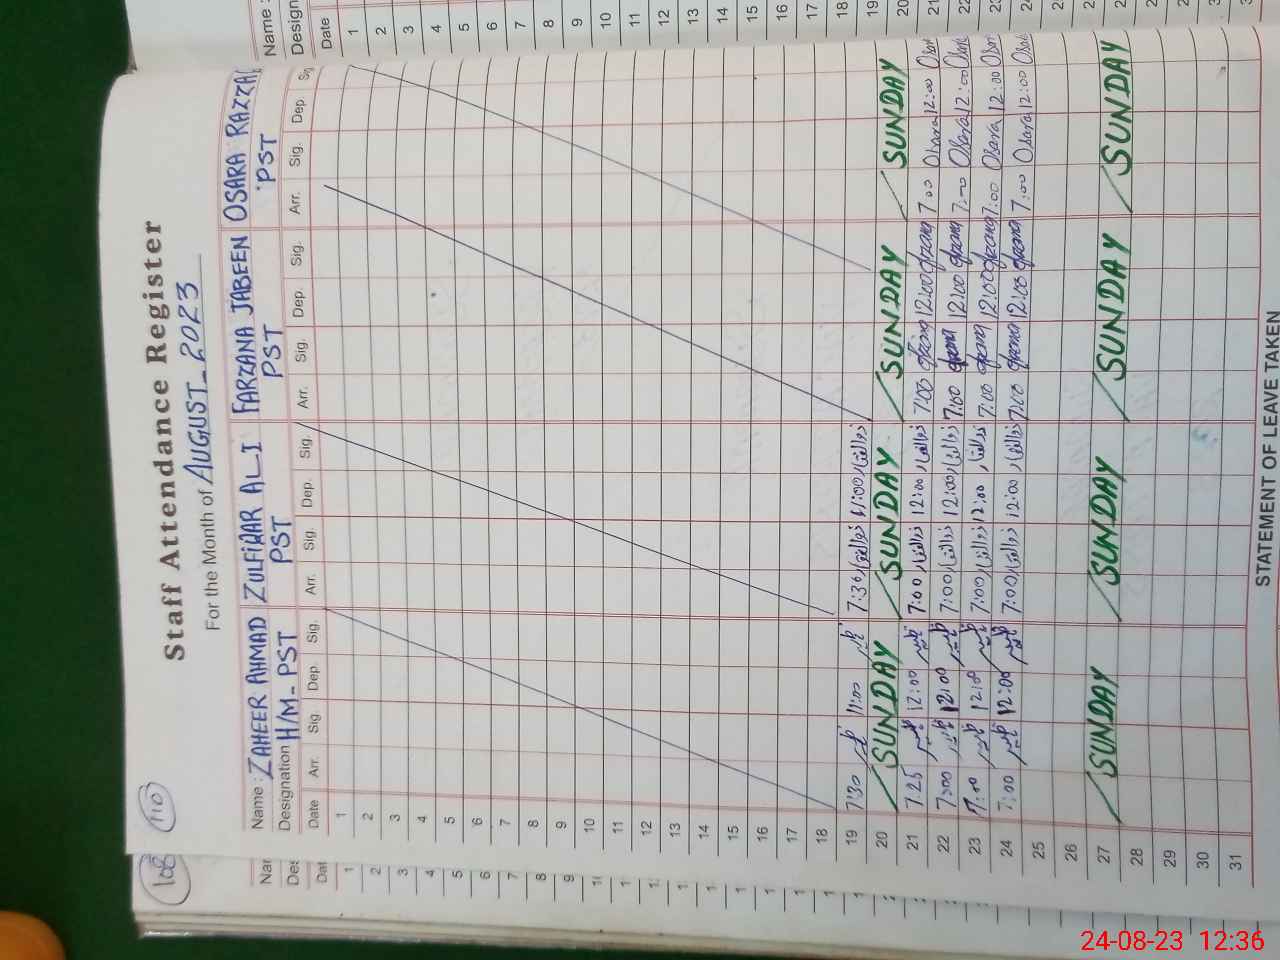 108 110
Staff Attendance Register
For the Month of AUGUST_2023
Name : ZAHEER AHMAD ZULFIQAR ALI FARZANA JABEEN OSARA RAZZAQ
Designation H/M- PST PST PST PST
Date Arr. Sig. Dep. Sig. Arr. Sig. Dep. Sig. Arr. Sig. Dep. Sig. Arr. Sig. Dep. Sig
1
2
3
4
5
6
7
8
9
10
11
12
13
14
15
16
17
18
19 7:30 11:00 7:30 ذوالفقار 11:00 ذوالفقار
20 SUNDAY SUNDAY SUNDAY SUNDAY
21 7:25 12:00 7:00 ذوالفقار 12:00 ذوالفقار 7:00 12:00 7:00 Osara 12:00 Osara
22 7:00 12:00 7:00 ذوالفقار 12:00 ذوالفقار 7:00 12:00 7:00 Osara 12:00 Osara
23 7:00 12:00 7:00 ذوالفقار 12:00 ذوالفقار 7:00 12:00 7:00 Osara 12:00 Osara
24 7:00 12:00 7:00 ذوالفقار 12:00 ذوالفقار 7:00 12:00 7:00 Osara 12:00 Osara
25
26
27 SUNDAY SUNDAY SUNDAY SUNDAY
28
29
30
31
STATEMENT OF LEAVE TAKEN
Name :
Design
Date
1
2
3
4
5
6
7
8
9
10
11
12
13
14
15
16
17
18
19
20
21
22
24-08-23 12:36